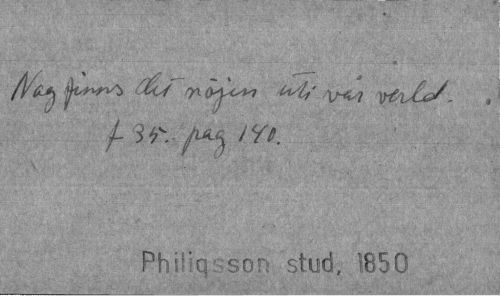 Nag finns det nöjen uti vår verld.
f 35. pag 140.
Philiqsson stud, 1850